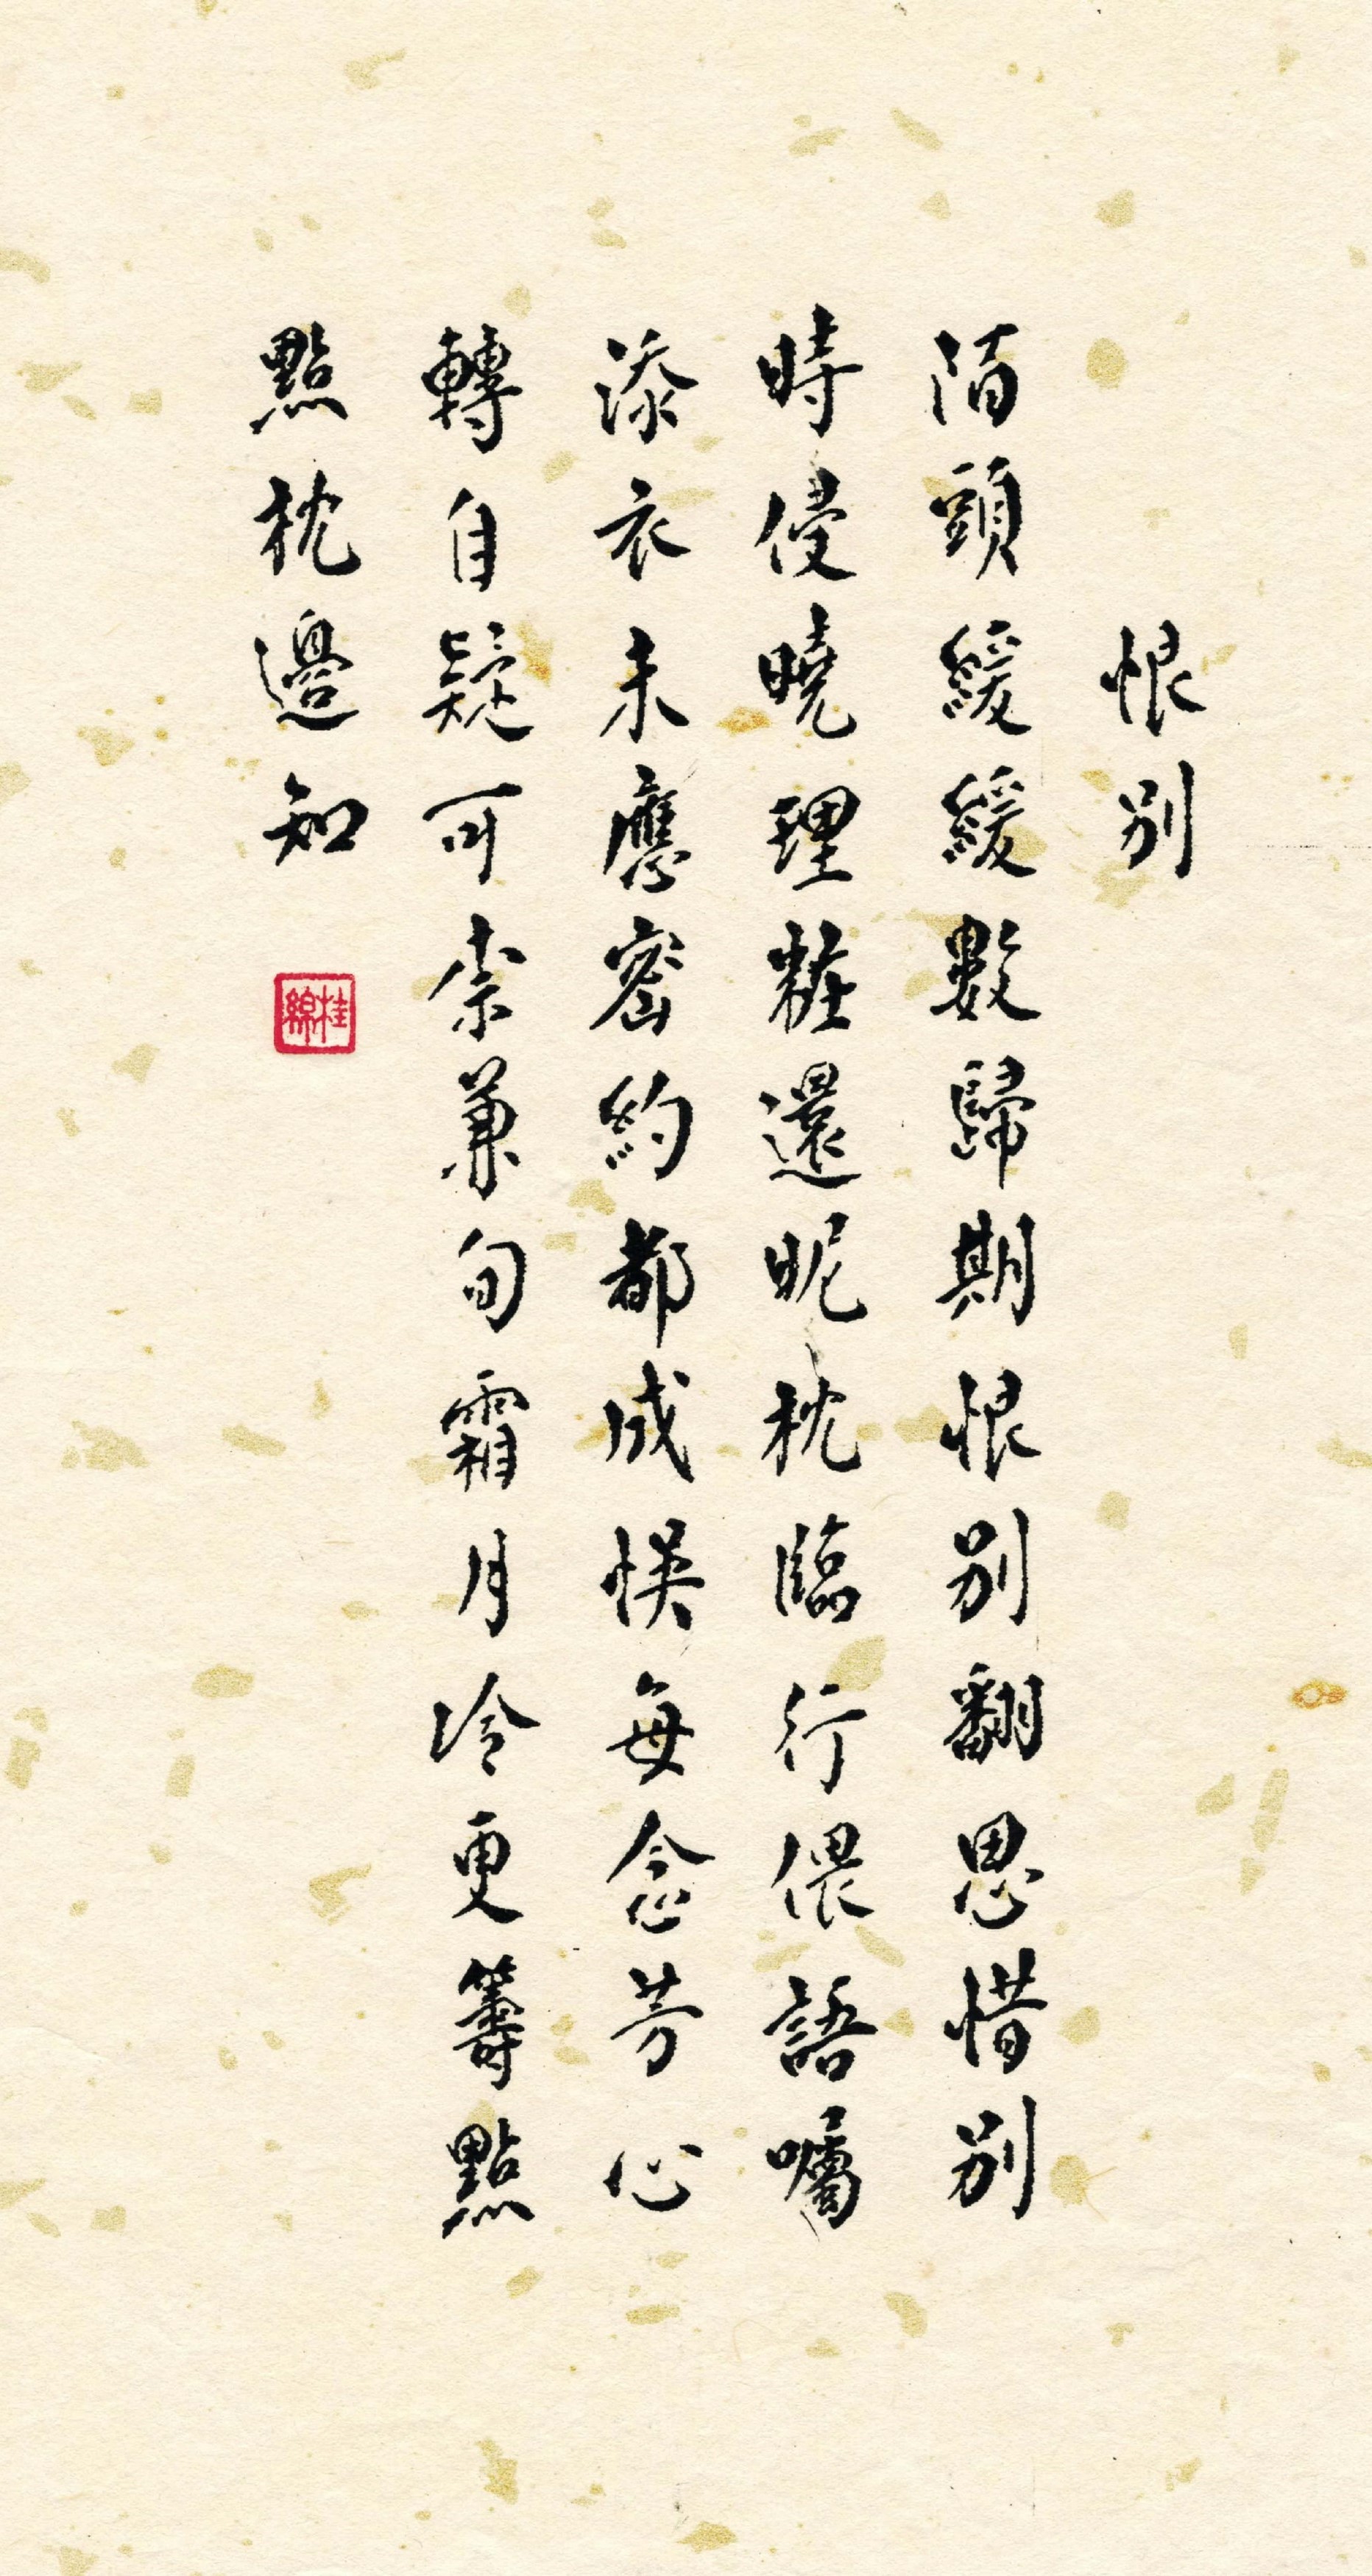 恨别
陌頭緩緩數歸期恨别翻思惜别
時侵曉理粧還昵枕臨行偎語囑
添衣未應密約都成悮每念芳心
轉自疑可柰兼旬霜月冷更籌點
點枕邊知
桂綿